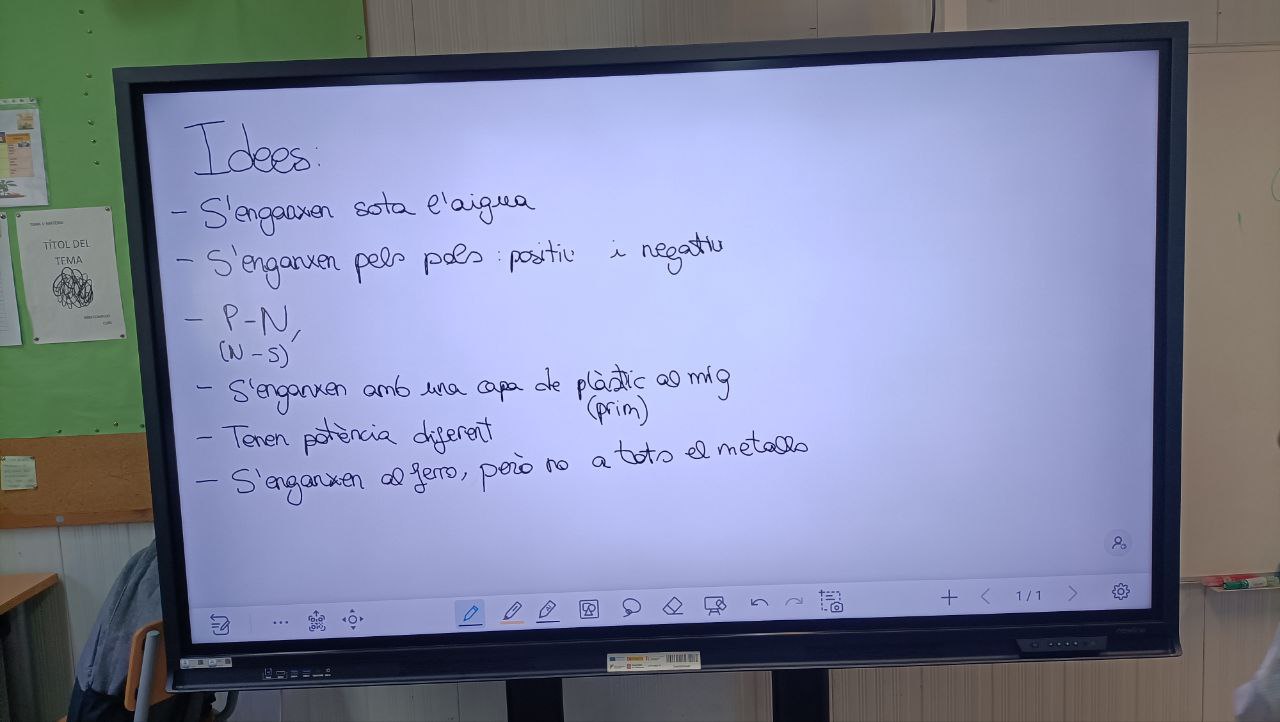 Idees:
- S'enganxen sota l'aigua
- S'enganxen pels pols: positiu i negatiu
- P-N,
(N-S)
- S'enganxen amb una capa de plàstic al mig
(prim)
- Tenen potència diferent
- S'enganxen al ferro, però no a tots el metalls
1/1
TÍTOL DEL
TEMA